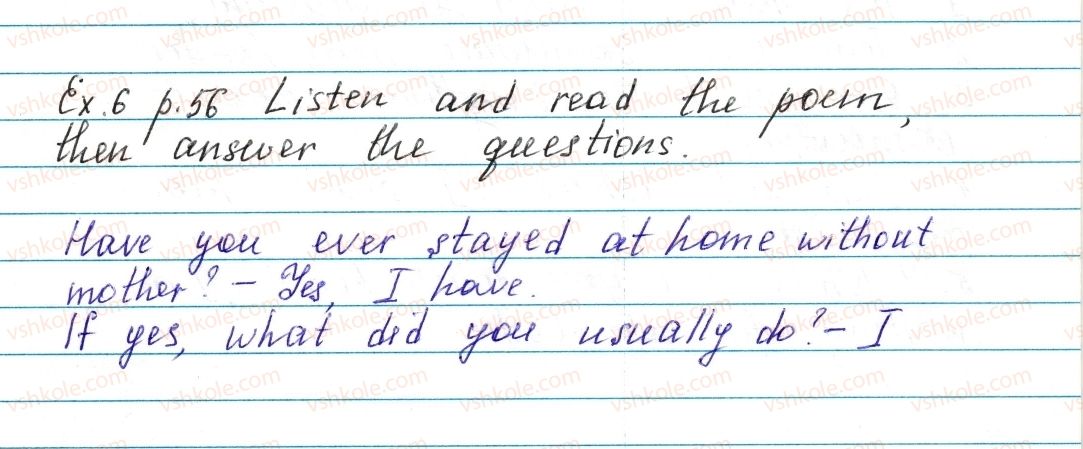 Ex.6 p.56 Listen and read the poem,
then answer the questions.
Have you ever stayed at home without
mother? - Yes, I have.
If yes, what did you usually do? - I